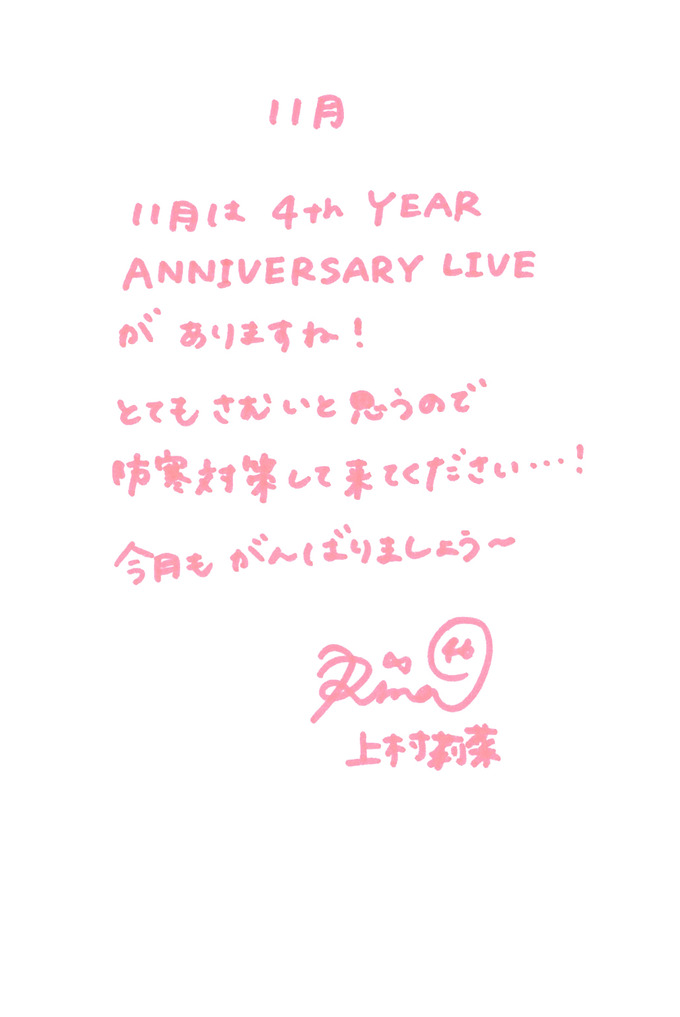 11月
11月は 4th YEAR
ANNIVERSARY LIVE
が ありますね！
とても さむいと 思うので
防寒対策して来てください…！
今月も がんばりましょう〜
Rina 46
上村莉菜